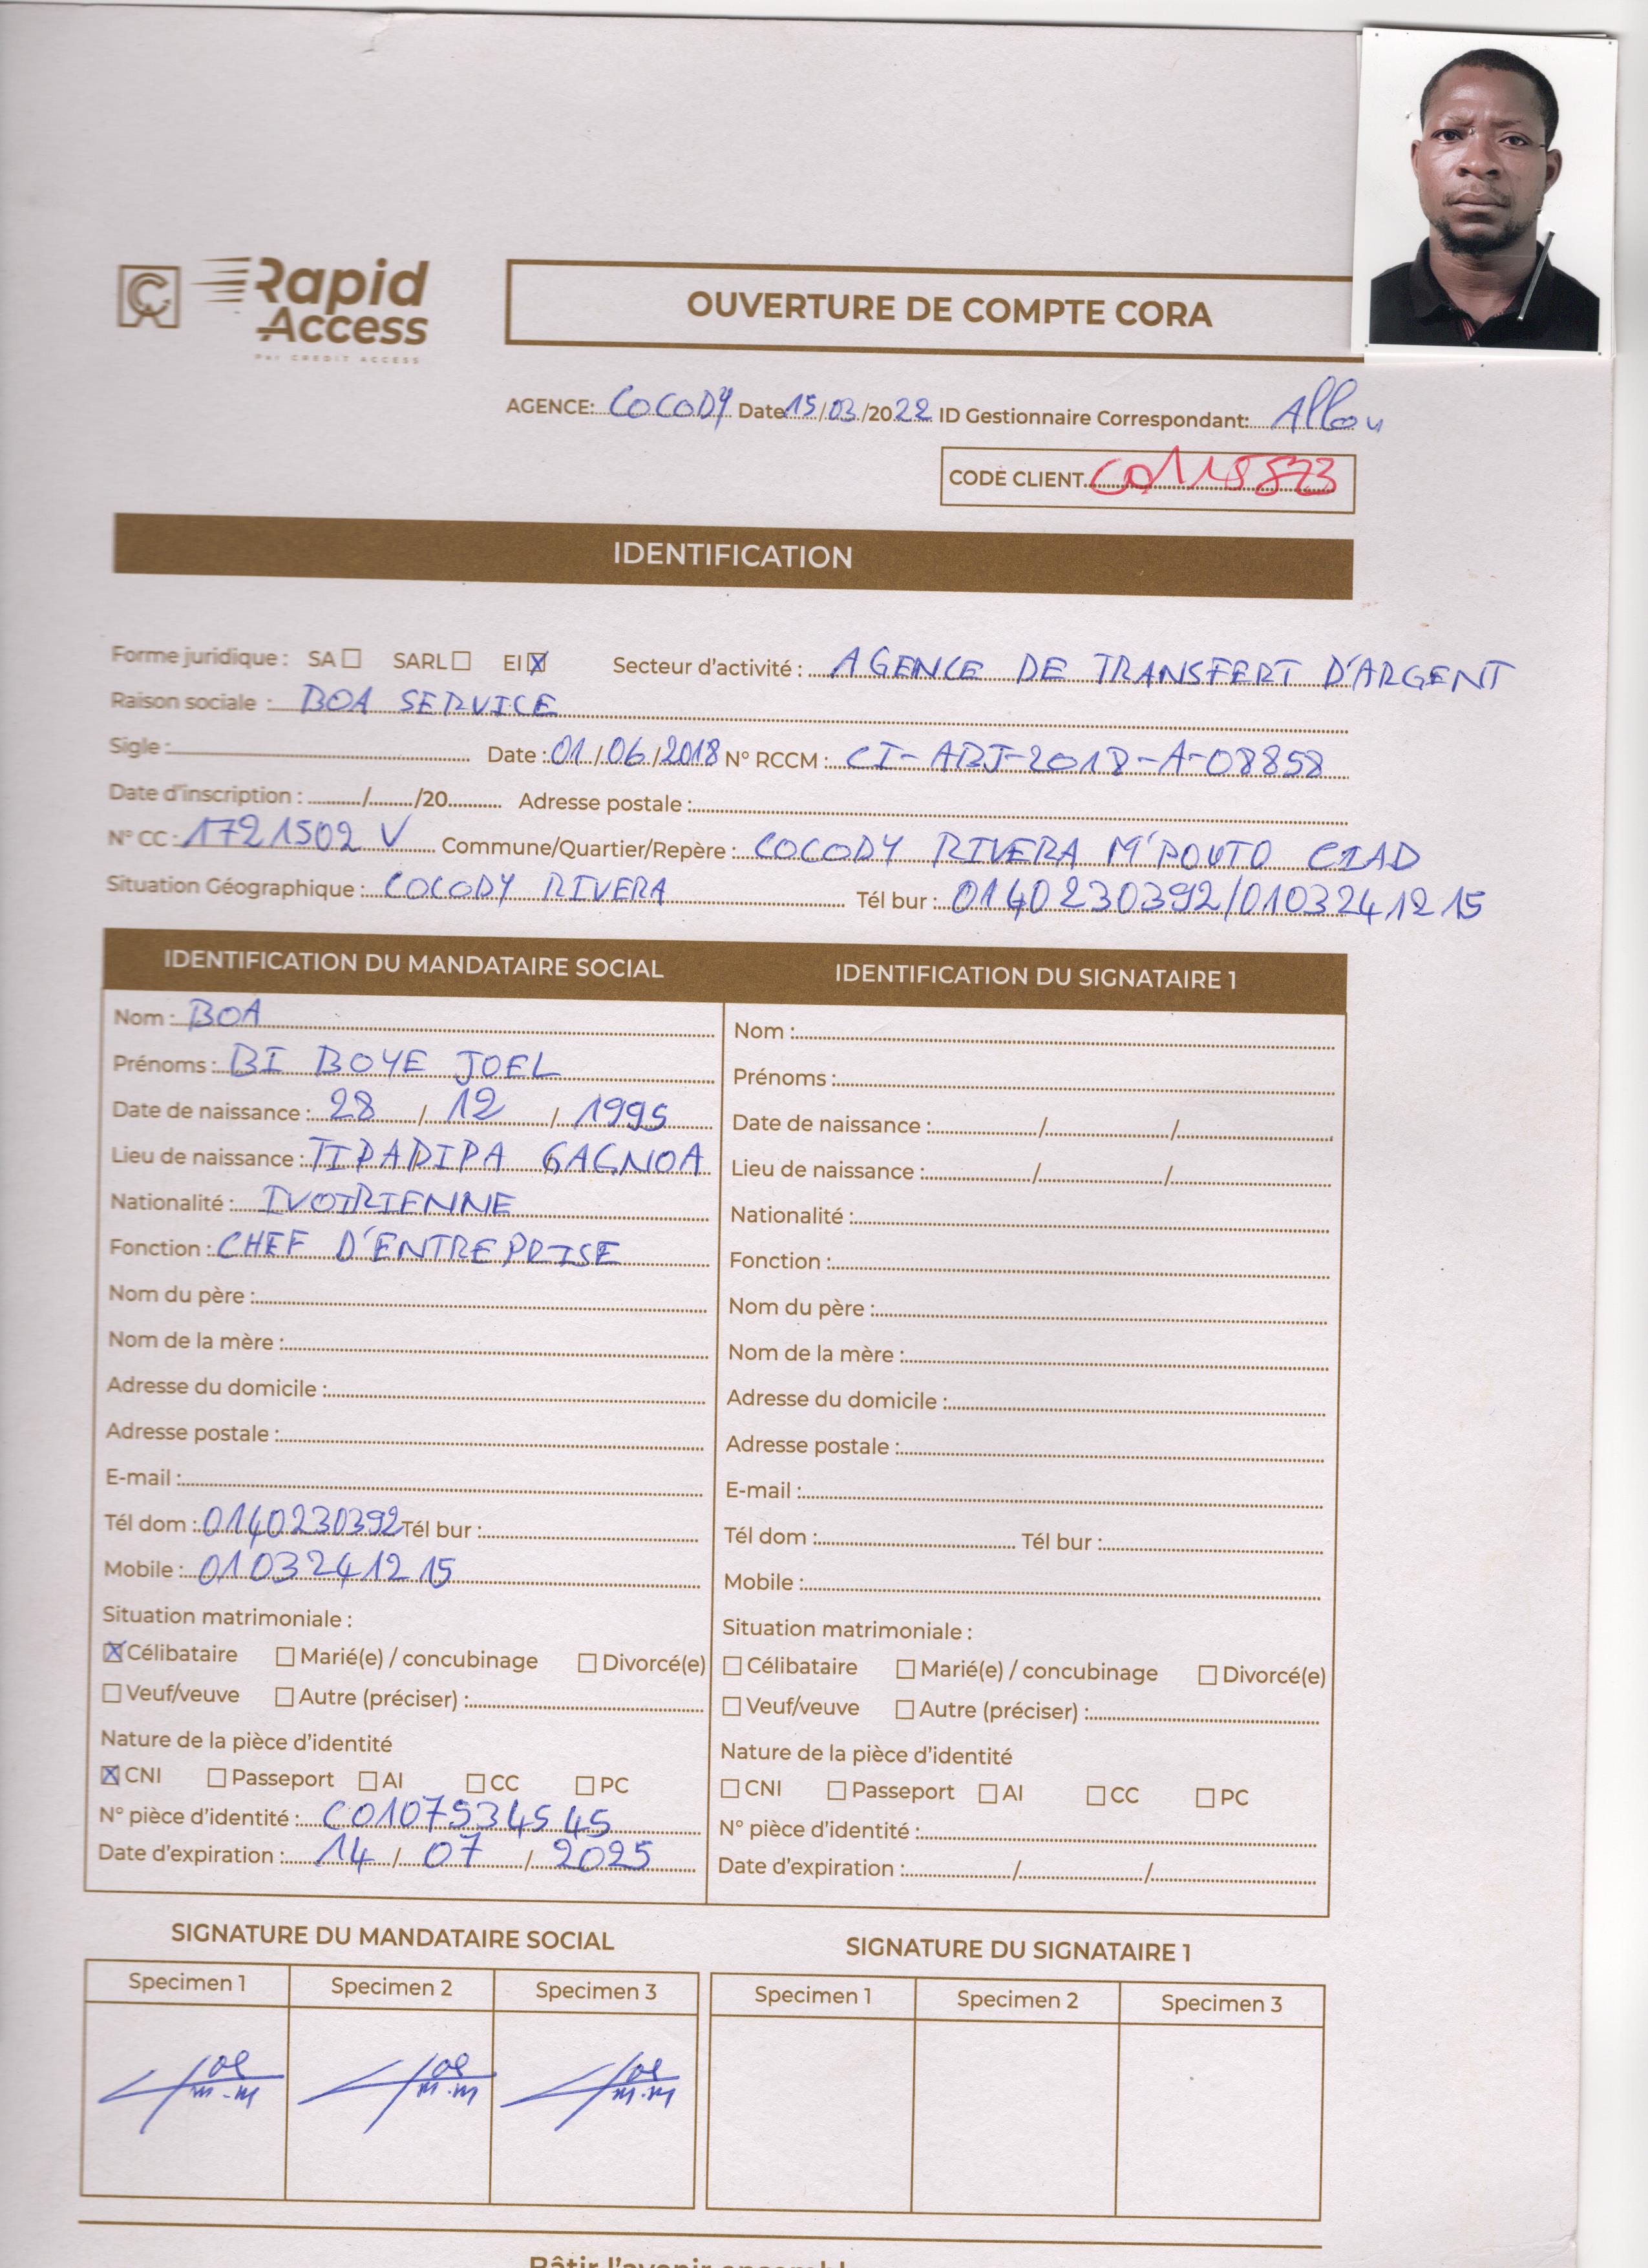 Rapid
Access
Par CREDIT ACCESS
OUVERTURE DE COMPTE CORA
AGENCE: COCODY Date 15/03/2022 ID Gestionnaire Correspondant: Allou
CODE CLIENT
IDENTIFICATION
Forme juridique : SA ☐ SARL ☐ EI ☒ Secteur d'activité : AGENCE DE TRANSFERT D'ARGENT
Raison sociale : BOA SERVICE
Sigle : Date : 01/06/2018 N° RCCM : CI-ABJ-2018-A-08858
Date d'inscription : / /20 Adresse postale :
N° CC : 1721502 V Commune/Quartier/Repère : COCODY RIVERA M'POUTO CIAD
Situation Géographique : COCODY RIVERA Tél bur : 0140230392/0103241215
IDENTIFICATION DU MANDATAIRE SOCIAL
Nom : BOA
Prénoms : BI BOYE JOEL
Date de naissance : 28 / 12 / 1995
Lieu de naissance : GAGNOA
Nationalité : IVOIRIENNE
Fonction : CHEF D'ENTREPRISE
Nom du père :
Nom de la mère :
Adresse du domicile :
Adresse postale :
E-mail :
Tél dom : 0140230392 Tél bur :
Mobile : 0103241215
Situation matrimoniale :
☒ Célibataire ☐ Marié(e) / concubinage ☐ Divorcé(e)
☐ Veuf/veuve ☐ Autre (préciser) :
Nature de la pièce d'identité
☒ CNI ☐ Passeport ☐ AI ☐ CC ☐ PC
N° pièce d'identité : C0107534545
Date d'expiration : 14 / 07 / 2025
IDENTIFICATION DU SIGNATAIRE 1
Nom :
Prénoms :
Date de naissance : / /
Lieu de naissance : / /
Nationalité :
Fonction :
Nom du père :
Nom de la mère :
Adresse du domicile :
Adresse postale :
E-mail :
Tél dom : Tél bur :
Mobile :
Situation matrimoniale :
☐ Célibataire ☐ Marié(e) / concubinage ☐ Divorcé(e)
☐ Veuf/veuve ☐ Autre (préciser) :
Nature de la pièce d'identité
☐ CNI ☐ Passeport ☐ AI ☐ CC ☐ PC
N° pièce d'identité :
Date d'expiration : / /
SIGNATURE DU MANDATAIRE SOCIAL
Specimen 1 Specimen 2 Specimen 3
SIGNATURE DU SIGNATAIRE 1
Specimen 1 Specimen 2 Specimen 3
Bâtir l'avenir